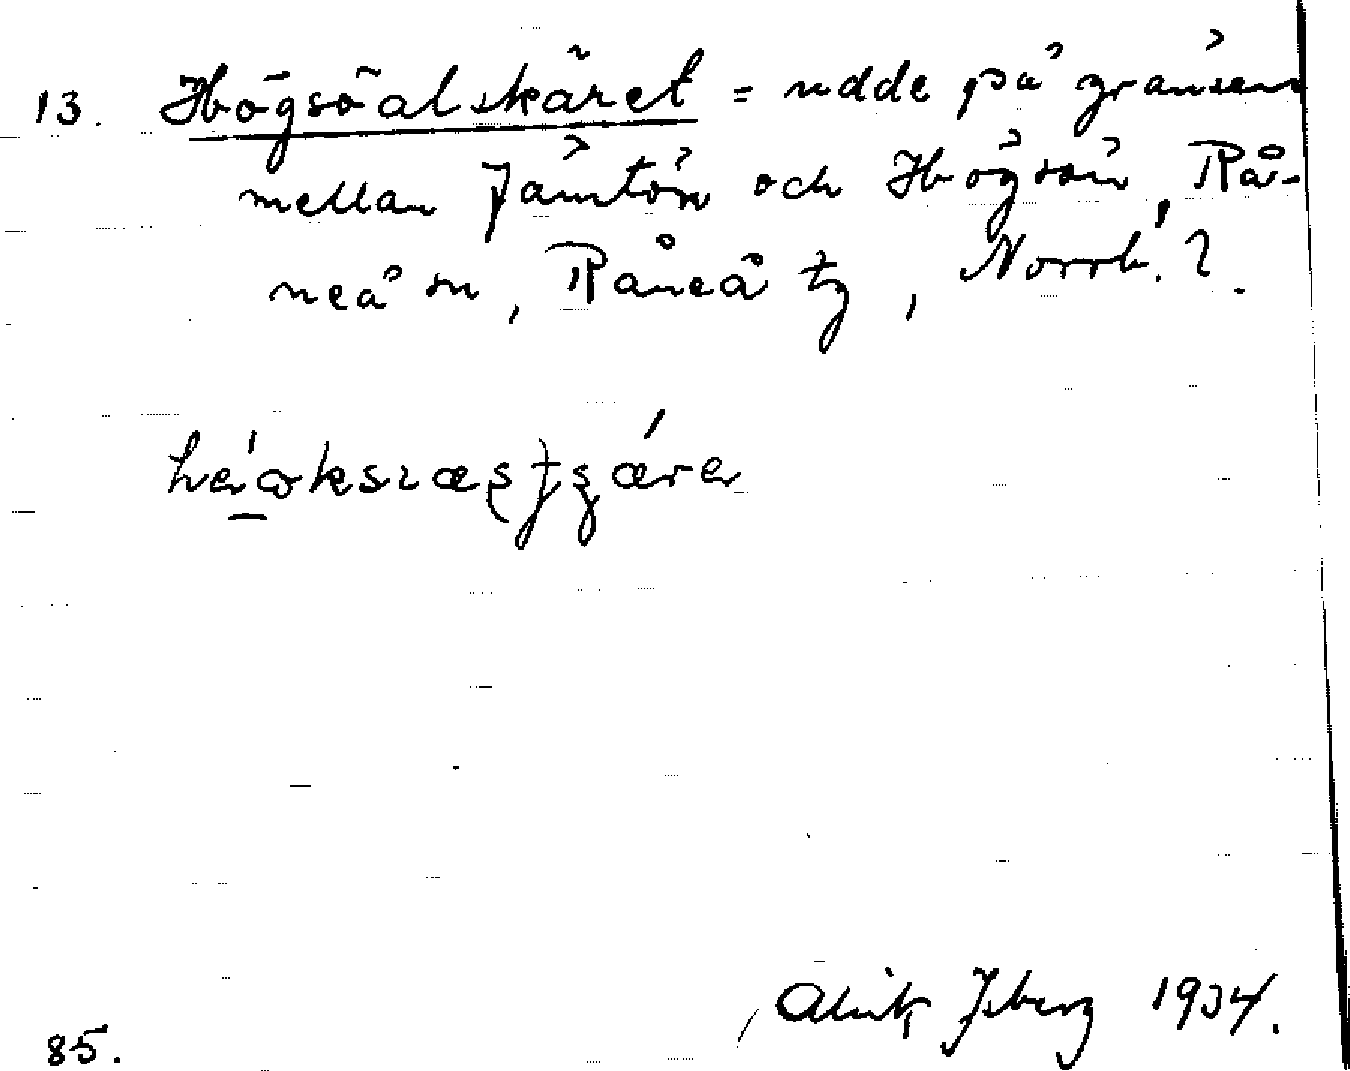 13. Högsöalskäret = udde på gränsen
mellan Jämtön och Högsön, Rå-
neå sn, Råneå tg, Norrb. l.
Alrik Isberg 1934.
85.